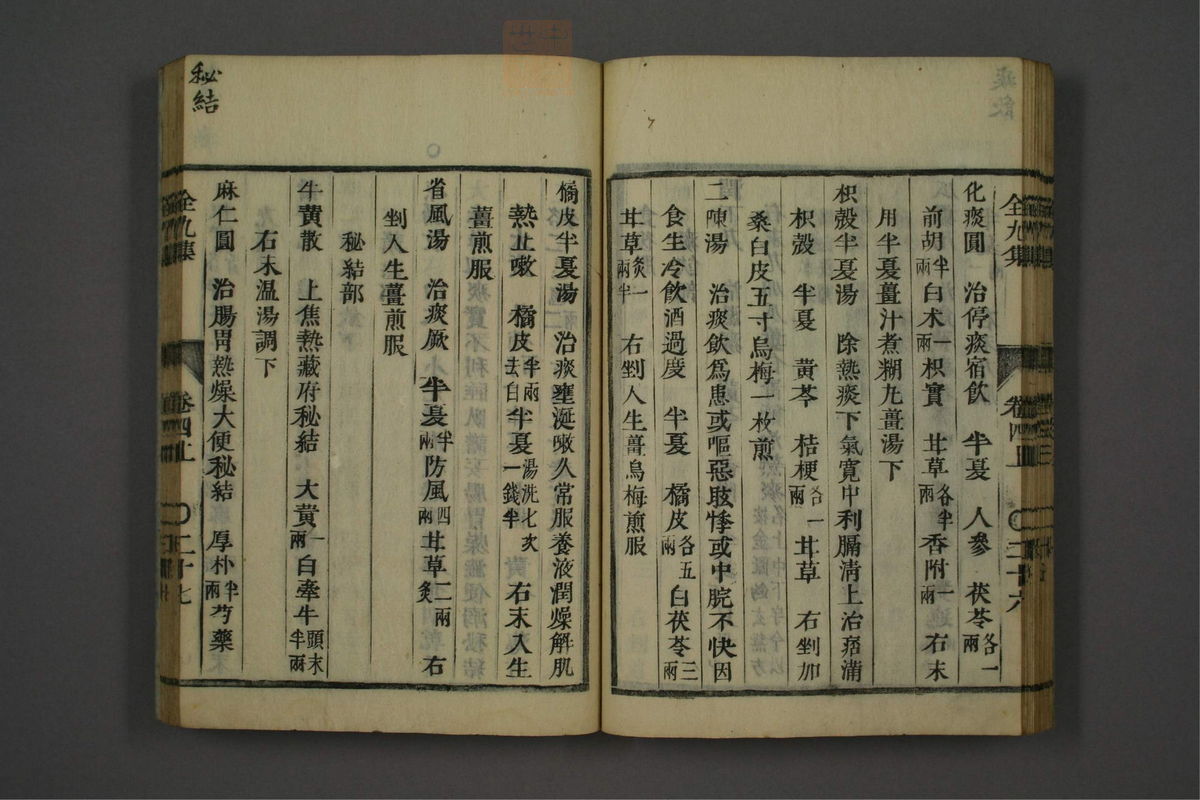 化痰圓　治停痰宿飲　半夏　人參　茯苓各一兩
前胡半兩白朮一兩枳實　甘草各半兩香附一兩　右末
用半夏薑汁煮糊丸薑湯下
枳殼半夏湯　除熱痰下氣寬中利膈淸上治痞滿
枳殼　半夏　黃芩　桔梗各一兩　甘草　右剉加
桑白皮五寸烏梅一枚煎
二陳湯　治痰飲爲患或嘔惡眩悸或中脘不快因
食生冷飲酒過度　半夏　橘皮各五兩白茯苓三兩
甘草炙一兩半　右剉入生薑烏梅煎服
全九集　卷四上　二十六
橘皮半夏湯　治痰壅涎嗽久常服養液潤燥解肌
熱止嗽　橘皮半兩去白半夏湯洗七次一錢半　右末入生
薑煎服
省風湯　治痰厥　半夏半兩防風四兩甘草二兩炙　右
剉入生薑煎服
秘結部
牛黃散　上焦熱藏府秘結　大黃一兩白牽牛頭末半兩
右末溫湯調下
麻仁圓　治腸胃熱燥大便秘結　厚朴半兩芍藥
全九集　卷四上　二十七
秘結
痰飲